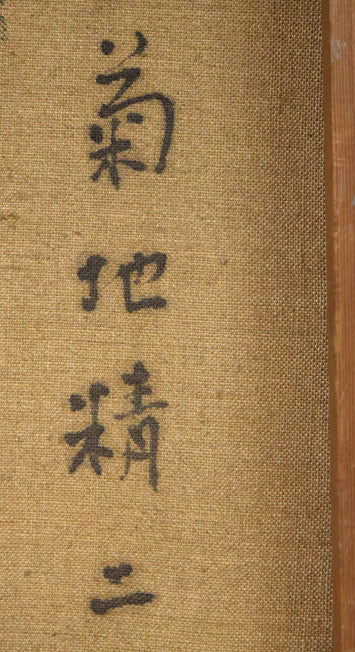 菊地精二